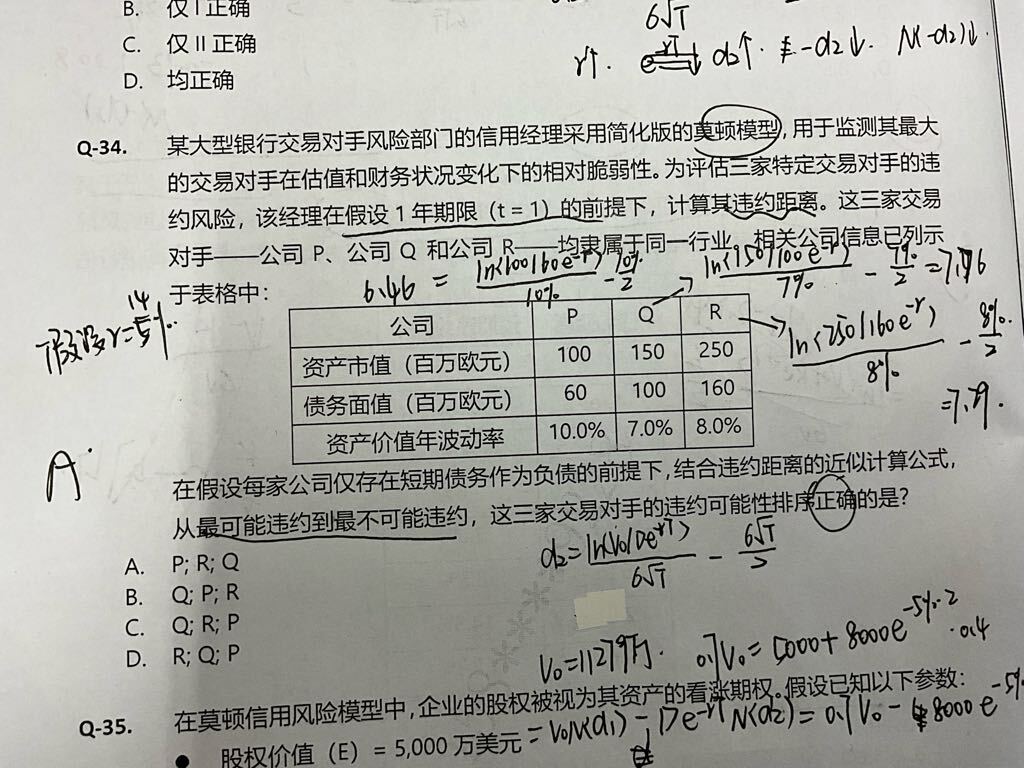 B. 仅 I 正确
C. 仅 II 正确
D. 均正确
6√T
r↑. e^-rT↓ d2↑. -d2↓. N(-d2)↓.
Q-34. 某大型银行交易对手风险部门的信用经理采用简化版的莫顿模型,用于监测其最大
的交易对手在估值和财务状况变化下的相对脆弱性。为评估三家特定交易对手的违
约风险,该经理在假设 1 年期限(t = 1)的前提下,计算其违约距离。这三家交易
对手——公司 P、公司 Q 和公司 R——均隶属于同一行业。相关公司信息已列示
于表格中:
6.46 = ln(100/60e^-r)/10% - 10%/2
ln(150/100e^-r)/7% - 7%/2 = 7.76
ln(250/160e^-r)/8% - 8%/2
=7.79.
假设r=5%.
公司 P Q R
资产市值(百万欧元) 100 150 250
债务面值(百万欧元) 60 100 160
资产价值年波动率 10.0% 7.0% 8.0%
A.
在假设每家公司仅存在短期债务作为负债的前提下,结合违约距离的近似计算公式,
从最可能违约到最不可能违约,这三家交易对手的违约可能性排序正确的是?
A. P; R; Q
B. Q; P; R
C. Q; R; P
D. R; Q; P
d2= ln(V0/De^-rT)/6√T - 6√T/2
V0=11279万. 0.7V0= 5000+8000e^-5%·2 ·0.4
Q-35. 在莫顿信用风险模型中,企业的股权被视为其资产的看涨期权。假设已知以下参数:
● 股权价值(E)= 5,000 万美元 = V0N(d1) - De^-rT N(d2) = 0.7V0 - 8000e^-5%